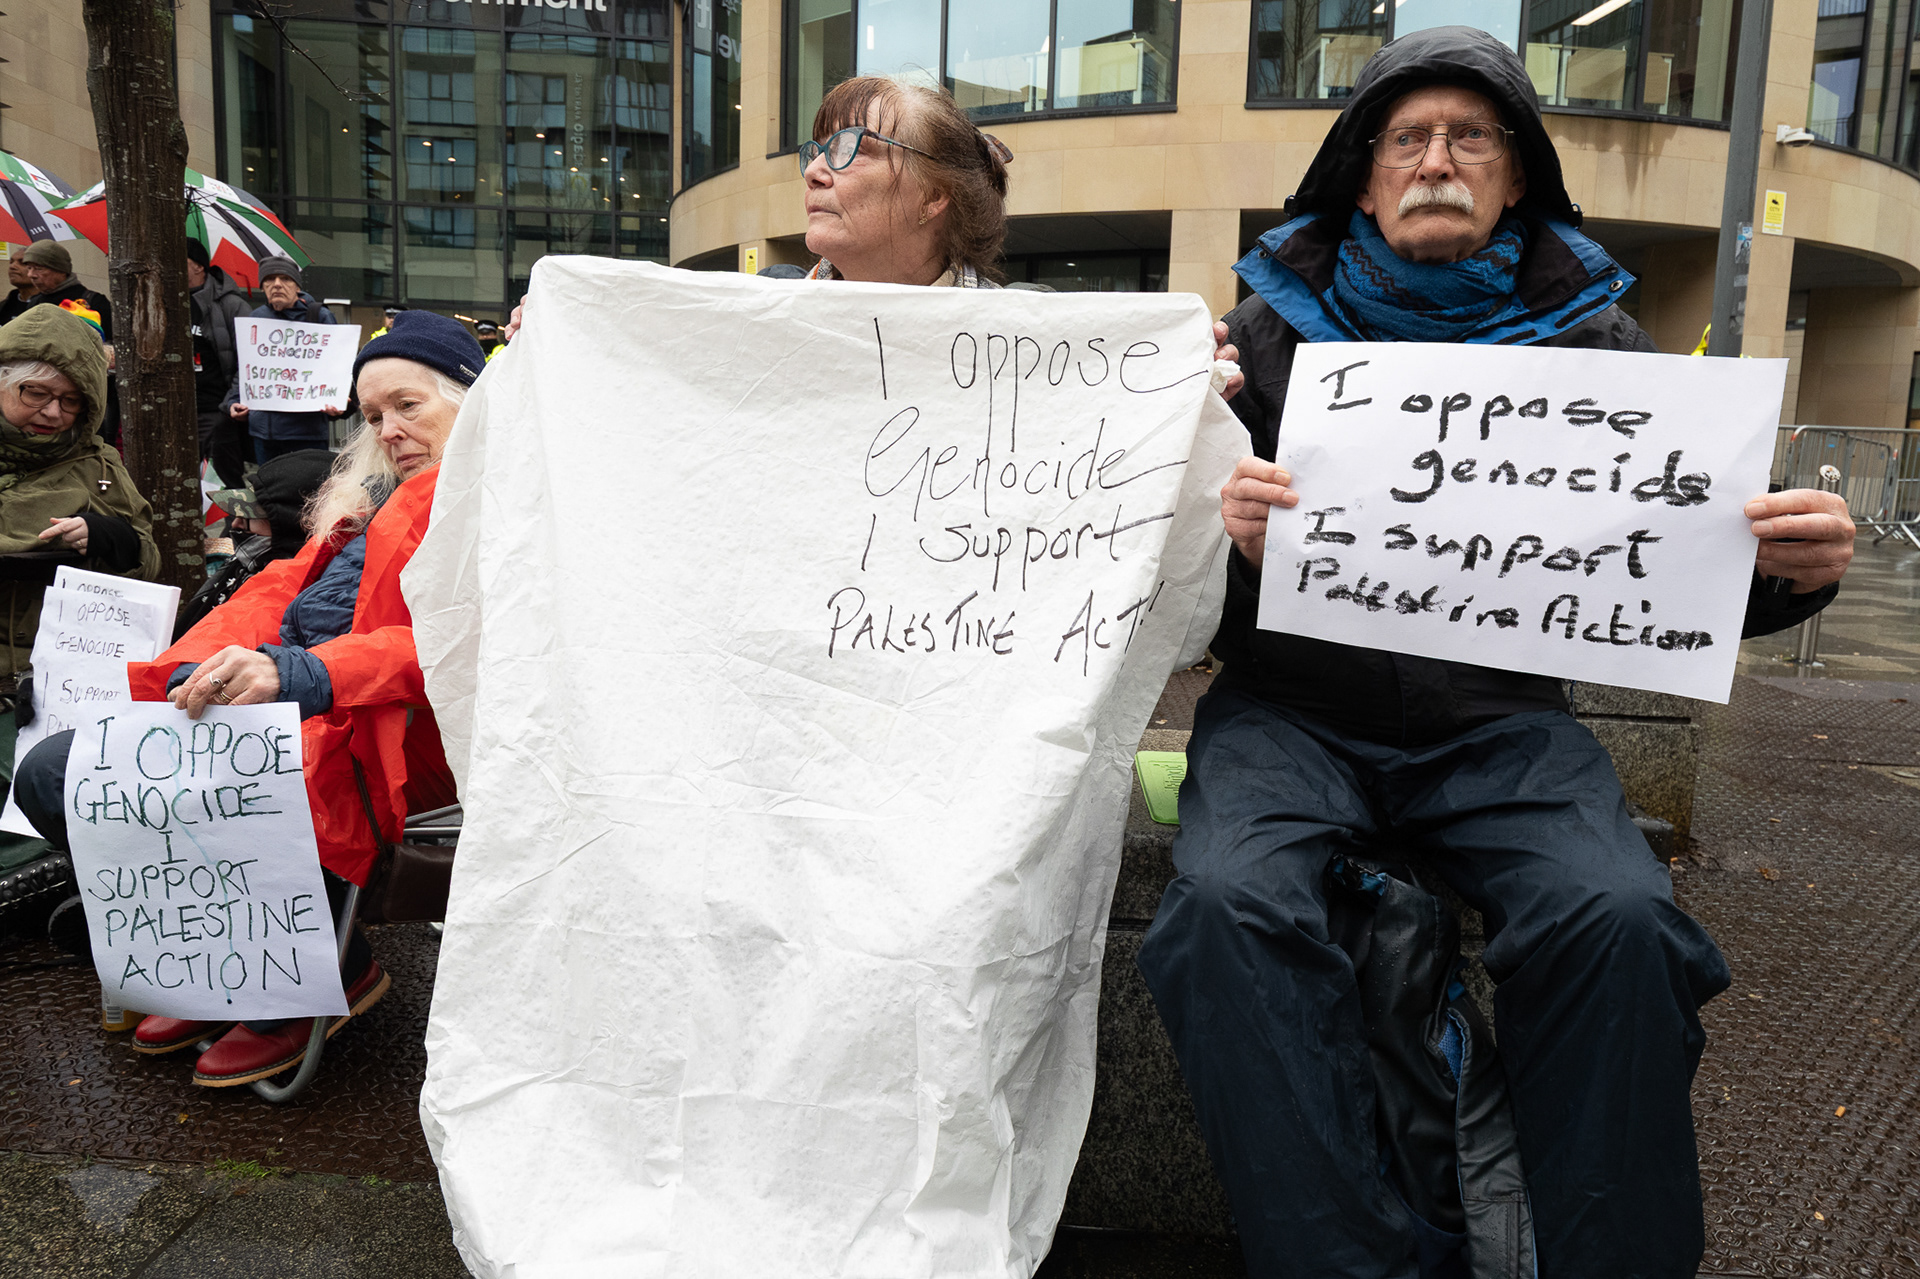 I OPPOSE
GENOCIDE
I SUPPORT
PALESTINE ACTION
I OPPOSE
I OPPOSE
GENOCIDE
I SUPPORT
I OPPOSE
GENOCIDE
I
SUPPORT
PALESTINE
ACTION
I oppose
Genocide
I support
PALESTINE ACT!
I oppose
genocide
I support
Palestine Action